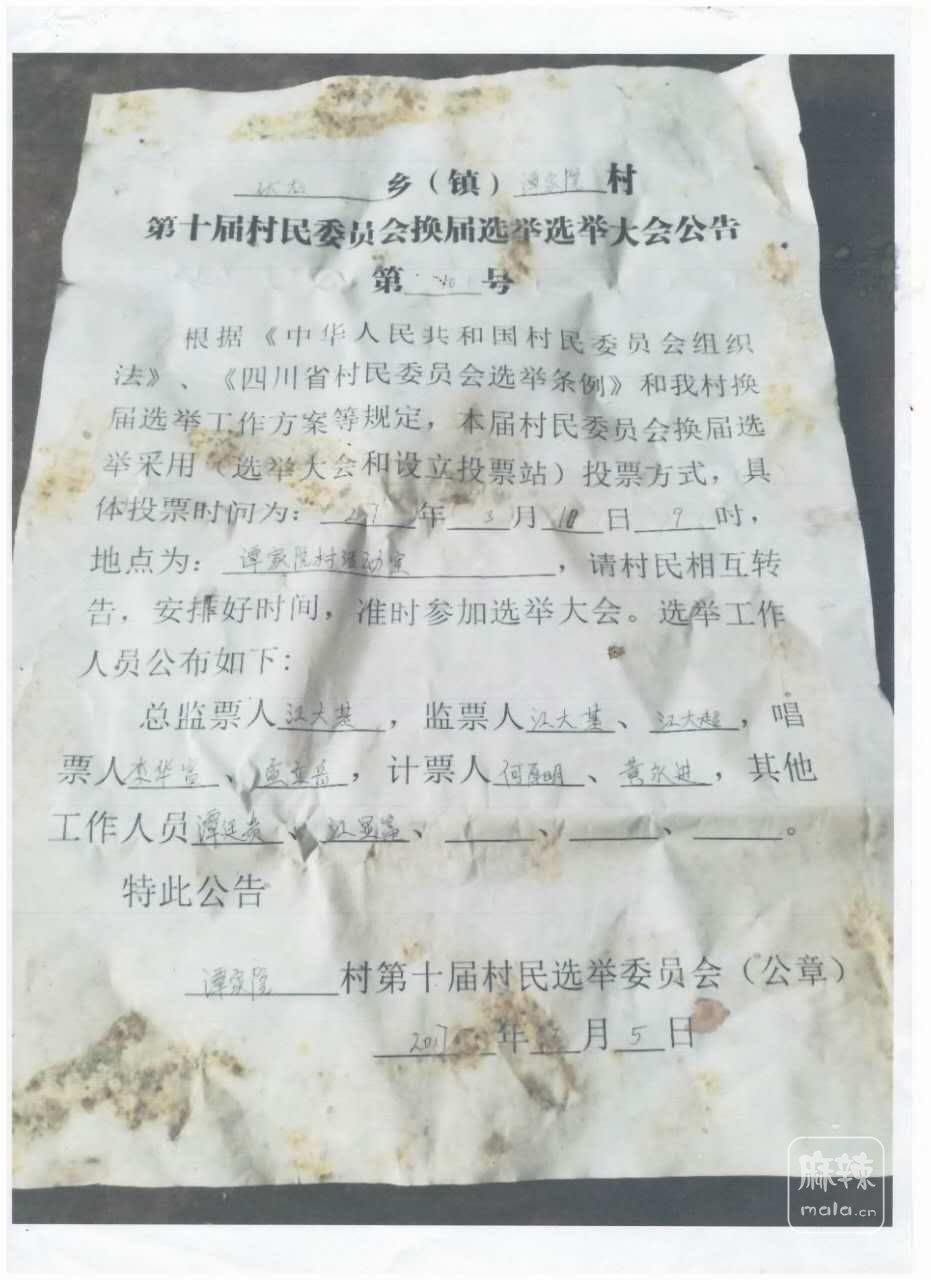 乡（镇）谭家院村
第十届村民委员会换届选举选举大会公告
第 号
根据《中华人民共和国村民委员会组织
法》、《四川省村民委员会选举条例》和我村换
届选举工作方案等规定，本届村民委员会换届选
举采用（选举大会和设立投票站）投票方式，具
体投票时间为：年3月10日9时，
地点为：谭家院村活动室，请村民相互转
告，安排好时间，准时参加选举大会。选举工作
人员公布如下：
总监票人江大基，监票人江大基、江大超，唱
票人李华富、，计票人何厚明、黄永进，其他
工作人员谭廷贵、、、、。
特此公告
谭家院村第十届村民选举委员会（公章）
2017年月5日
麻辣
mala.cn